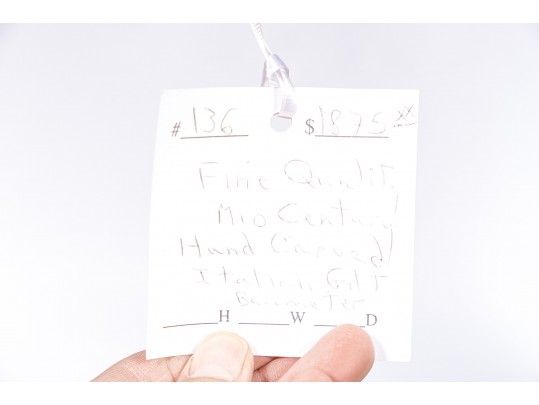 # 136 $ 1875 xx
Fine Quality
Mid Century
Hand Carved
Italian Gilt
Barometer
H W D